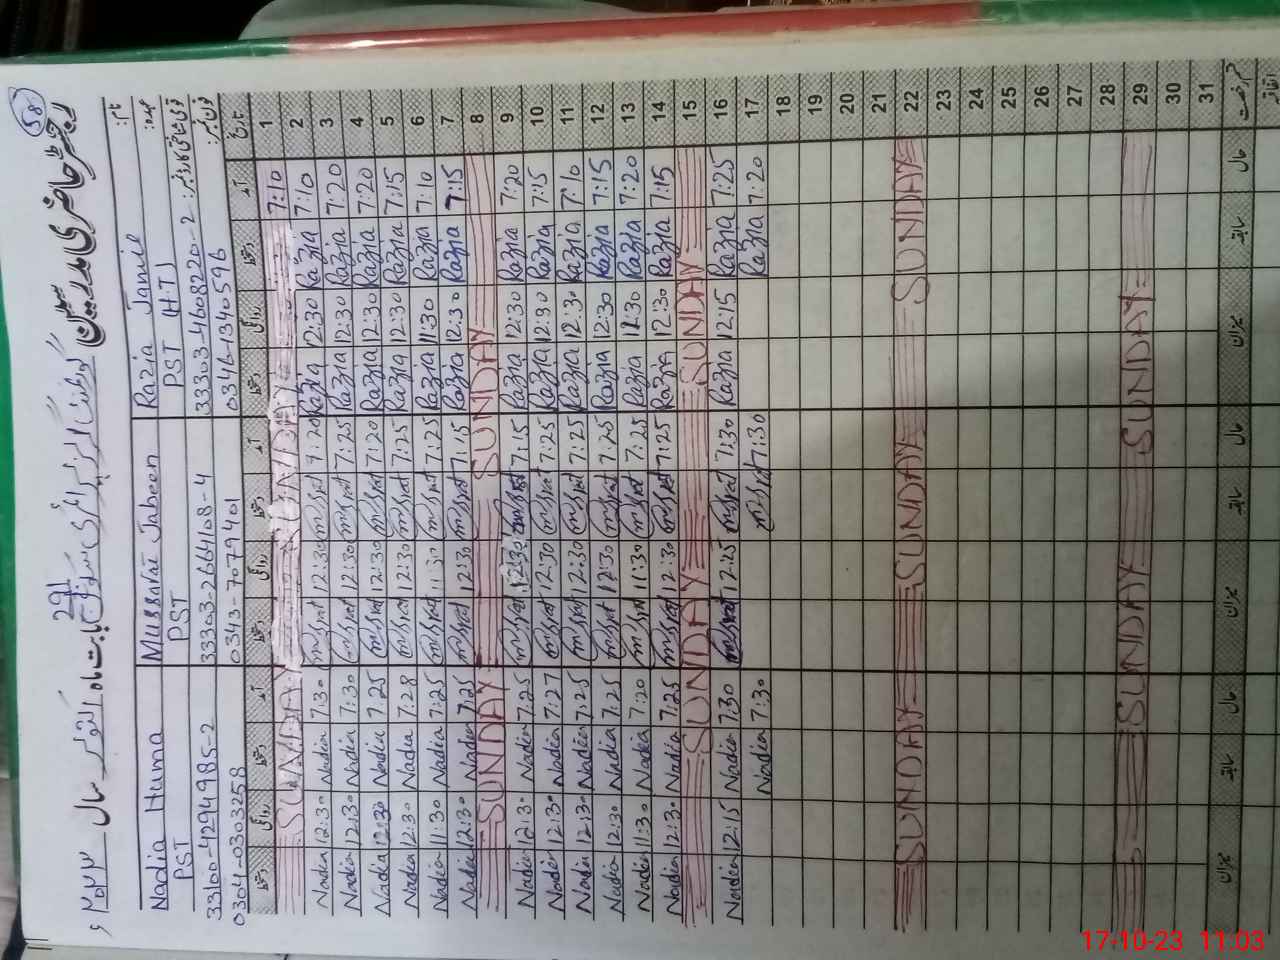 58
رجسٹر حاضری مدرسین گورنمنٹ گرلز پرائمری سکول 29 بابت ماہ اکتوبر سال ۲۰۲۳ء
نام: Razia Jamil Mussarat Jabeen Nadia Huma
عہدہ: PST (HT) PST PST
قومی شناختی کارڈ نمبر: 33303-4608220-2 33303-2664108-4 33100-4294985-2
فون نمبر: 0346-1340596 0343-7079401 0304-0303258
تاریخ آمد دستخط روانگی دستخط آمد دستخط روانگی دستخط آمد دستخط روانگی دستخط
1 7:10 SUNDAY SUNDAY
2 7:10 Razia 12:30 Razia 7:20 Musrat 12:30 Musrat 7:30 Nadia 12:30 Nadia
3 7:10 Razia 12:30 Razia 7:25 Musrat 12:30 Musrat 7:30 Nadia 12:30 Nadia
4 7:20 Razia 12:30 Razia 7:20 Musrat 12:30 Musrat 7:25 Nadia 12:30 Nadia
5 7:15 Razia 12:30 Razia 7:25 Musrat 12:30 Musrat 7:28 Nadia 12:30 Nadia
6 7:10 Razia 11:30 Razia 7:25 Musrat 11:30 Musrat 7:25 Nadia 11:30 Nadia
7 7:15 Razia 12:30 Razia 7:15 Musrat 12:30 Musrat 7:25 Nadia 12:30 Nadia
8 SUNDAY SUNDAY
9 7:20 Razia 12:30 Razia 7:15 Musrat 12:30 Musrat 7:25 Nadia 12:30 Nadia
10 7:15 Razia 12:30 Razia 7:25 Musrat 12:30 Musrat 7:27 Nadia 12:30 Nadia
11 7:10 Razia 12:30 Razia 7:25 Musrat 12:30 Musrat 7:25 Nadia 12:30 Nadia
12 7:15 Razia 12:30 Razia 7:25 Musrat 12:30 Musrat 7:25 Nadia 12:30 Nadia
13 7:20 Razia 11:30 Razia 7:25 Musrat 11:30 Musrat 7:20 Nadia 11:30 Nadia
14 7:15 Razia 12:30 Razia 7:25 Musrat 12:30 Musrat 7:25 Nadia 12:30 Nadia
15 SUNDAY SUNDAY
16 7:25 Razia 12:15 Razia 7:30 Musrat 12:25 Musrat 7:30 Nadia 12:15 Nadia
17 7:20 Razia 7:30 Musrat 7:30 Nadia
18
19
20
21
22 SUNDAY SUNDAY SUNDAY
23
24
25
26
27
28
29 SUNDAY SUNDAY
30
31
قسم رخصت حال سابقہ میزان حال سابقہ میزان حال سابقہ میزان
اتفاقیہ
17-10-23 11:03